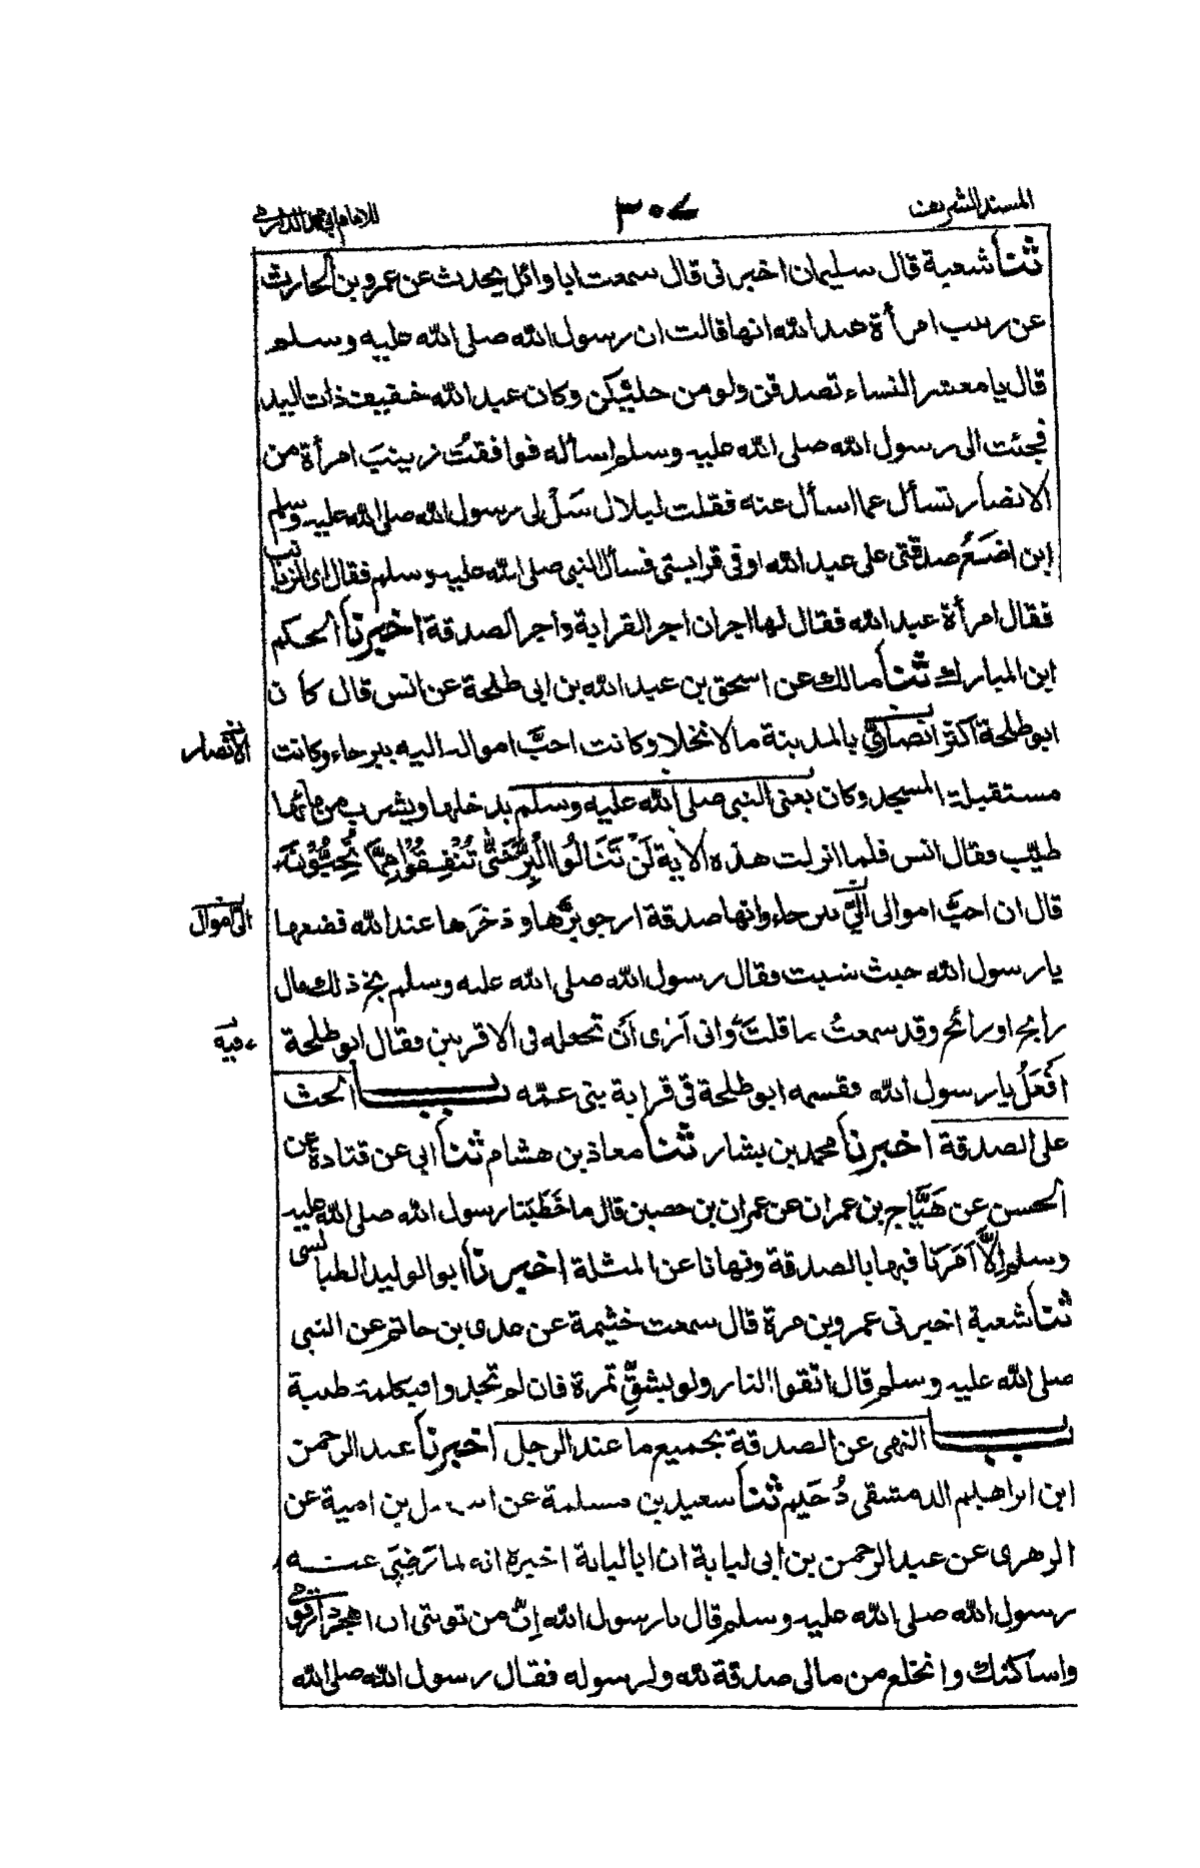 المسند الشريف
٣٠٧
للامام ابى محمد الدارمى
ثنا شعبة قال سليمان اخبرنى قال سمعت ابا وائل يحدث عن عمرو بن الحارث
عن زينب امرأة عبد الله انها قالت ان رسول الله صلى الله عليه وسلم
قال يا معشر النساء تصدقن ولو من حليكن وكان عبد الله خفيف ذات اليد
فجئت الى رسول الله صلى الله عليه وسلم اسأله فوافقتُ زينبَ امرأة من
الانصار تسأل عما اسأل عنه فقلت لبلال سَلْ لى رسول الله صلى الله عليه وسلم
اين اضَعُ صدقتى على عبد الله او فى قرابتى فسأل النبى صلى الله عليه وسلم فقال اى الزيانب
فقال امرأة عبد الله فقال لها اجران اجر القرابة واجر الصدقة اخبرنا الحكم
ابن المبارك ثنا مالك عن اسحق بن عبد الله بن ابى طلحة عن انس قال كان
ابو طلحة اكثر انصارىّ بالمدينة مالا نخلا وكانت احبَّ امواله اليه بيرحاء وكانت
الانصار
مستقبلة المسجد وكان يعنى النبى صلى الله عليه وسلم يدخلها ويشرب من مائها
طيّب فقال انس فلما انزلت هذه الاية لَنْ تَنَالُوا الْبِرَّ حَتّٰى تُنْفِقُوْا مِمَّا تُحِبُّوْنَ
قال ان احبَّ اموالى الىَّ بيرحاء وانها صدقة ارجو برَّها وذخرَها عند الله فضعها
الىّ اموالى
يا رسول الله حيث شئت فقال رسول الله صلى الله عليه وسلم بخ ذلك مال
رابح او رائح وقد سمعتُ ما قلتَ وانى اَرٰى اَن تجعله فى الاقربين فقال ابو طلحة
فيه
افعَلُ يا رسول الله فقسمه ابو طلحة فى قرابة بنى عمّه باب الحث
على الصدقة اخبرنا محمد بن بشار ثنا معاذ بن هشام ثنا ابى عن قتادة عن
الحسن عن هَيَّاج بن عمران عن عمران بن حصين قال ما خَطَبَنا رسول الله صلى الله عليه
وسلم اِلَّا اَمَرَنا فيها بالصدقة ونهانا عن المثلة اخبرنا ابو الوليد الطيالسى
ثنا شعبة اخبرنى عمرو بن مرة قال سمعت خيثمة عن عدى بن حاتم عن النبى
صلى الله عليه وسلم قال اتقوا النار ولو بشقّ تمرة فان لم تجدوا فبكلمة طيبة
باب النهى عن الصدقة بجميع ما عند الرجل اخبرنا عبد الرحمن
ابن ابراهيم الدمشقى دُحَيم ثنا سعيد بن مسلمة عن اسمعيل بن امية عن
الزهرى عن عبد الرحمن بن ابى لبابة ان ابا لبابة اخبره انه لما رَضِىَ عنه
رسول الله صلى الله عليه وسلم قال يا رسول الله اِنَّ من توبتى ان اهجر دار قومى
واساكنك وانخلع من مالى صدقة لله ولرسوله فقال رسول الله صلى الله